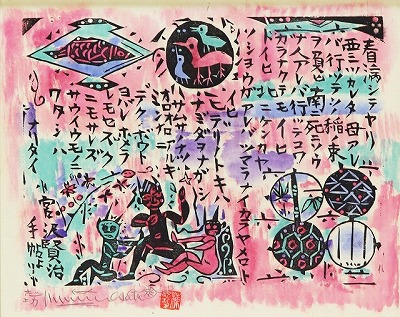 看病シテヤリ
西ニツカレタ母アレバ
行ッテソノ稲ノ束ヲ
負ヒ
南ニ死ニサウナ
人アレバ行ッテコワ
ガラナクテモイヽ
トイヒ
北ニケンクヮヤ
ソショウガアレバツマラナイカラヤメロト
イヒ
ヒデリノトキハ
ナミダヲナガシ
サムサノナツハ
オロオロアルキ
ミンナニデクノボウト
ヨバレ
ホメラレモセズ
クニモサレズ
サウイウモノニ
ワタシハ
ナリタイ
宮沢賢治
手帖より